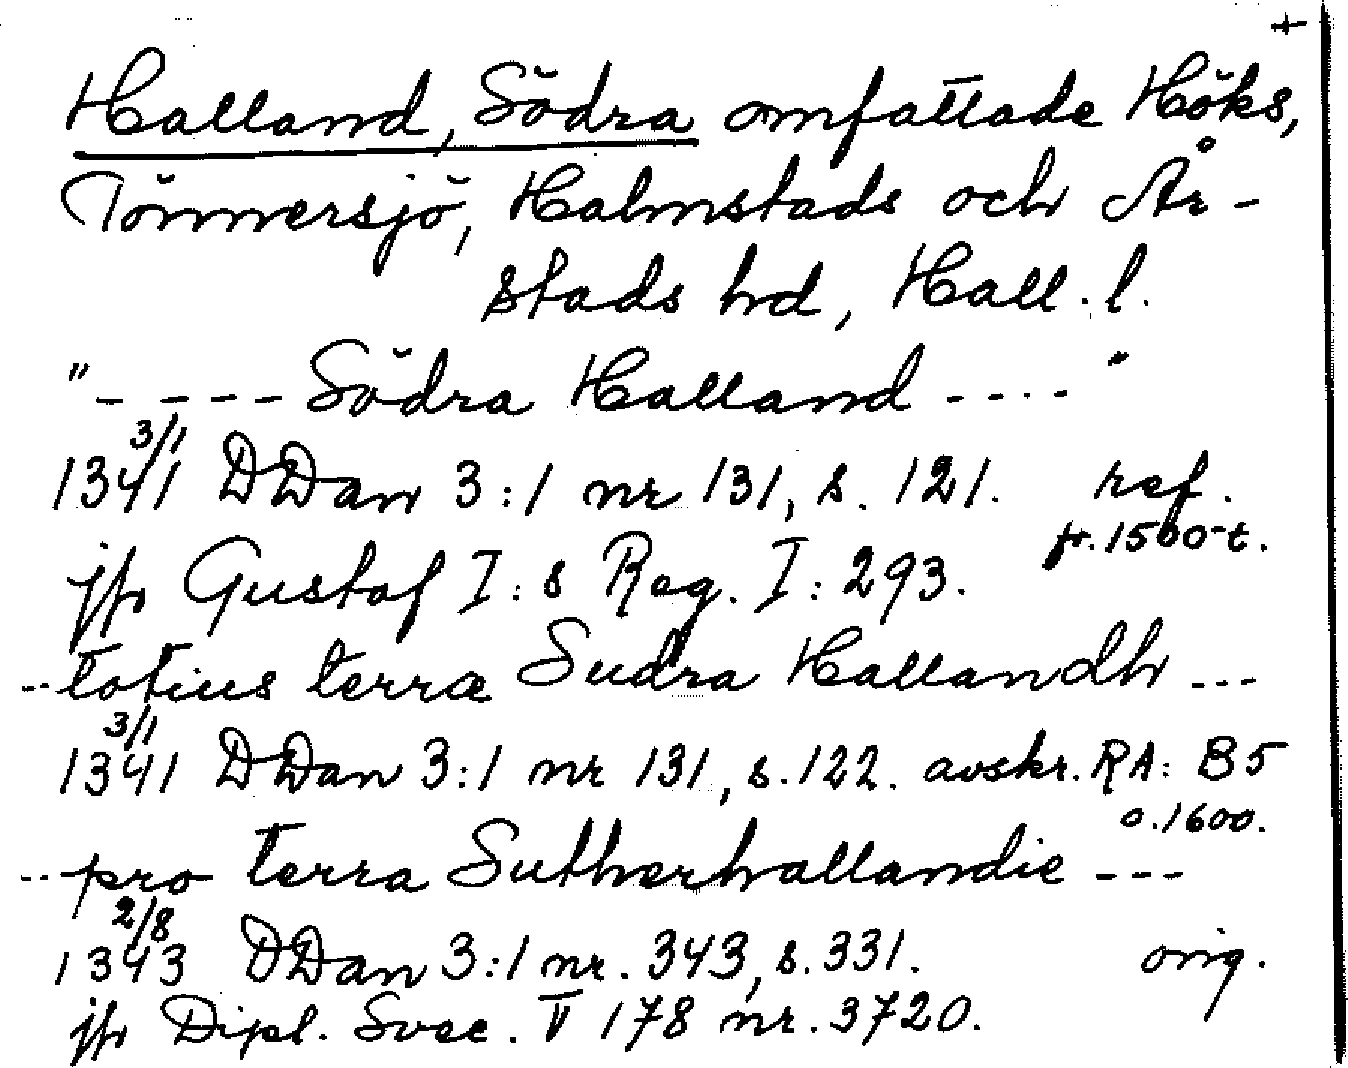 +
Halland, Södra omfattade Höks,
Tönnersjö, Halmstads och År-
stads hd, Hall. l.
"---- Södra Halland ----"
3/1
1341 DDan 3:1 nr 131, s. 121. ref.
fr. 1500-t.
jfr Gustaf I:s Reg. I: 293.
--totius terræ Sudra Hallandh ---
3/1
1341 DDan 3:1 nr 131, s. 122. avskr. RA: B5
o. 1600.
--pro terra Sutherhallandie ---
2/8
1343 DDan 3:1 nr. 343, s. 331. orig.
jfr Dipl. Svec. V 178 nr. 3720.